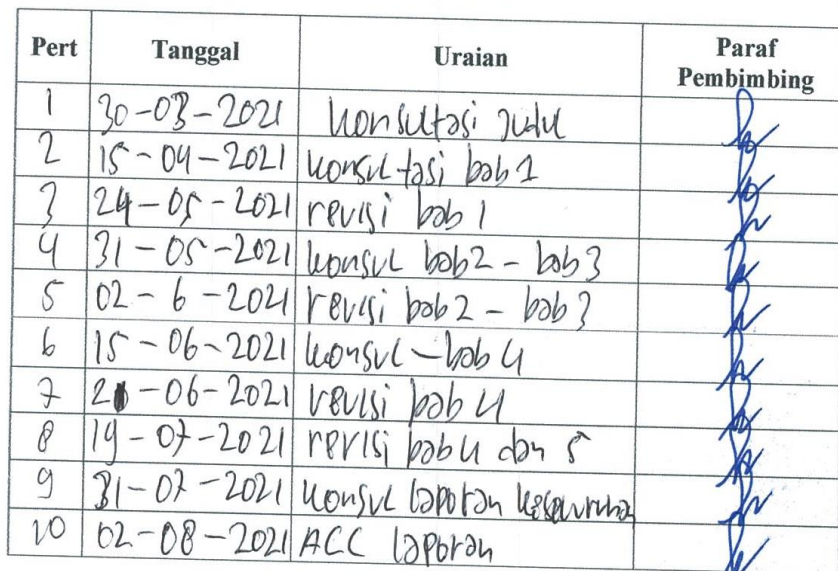 Pert Tanggal Uraian Paraf Pembimbing
1 30-03-2021 konsultasi judul
2 15-04-2021 konsultasi bab 1
3 24-05-2021 revisi bab 1
4 31-05-2021 konsul bab 2 - bab 3
5 02-6-2021 revisi bab 2 - bab 3
6 15-06-2021 konsul - bab 4
7 -06-2021 revisi bab 4
8 19-07-2021 revisi bab 4 dan 5
9 31-07-2021 konsul laporan
10 02-08-2021 ACC laporan